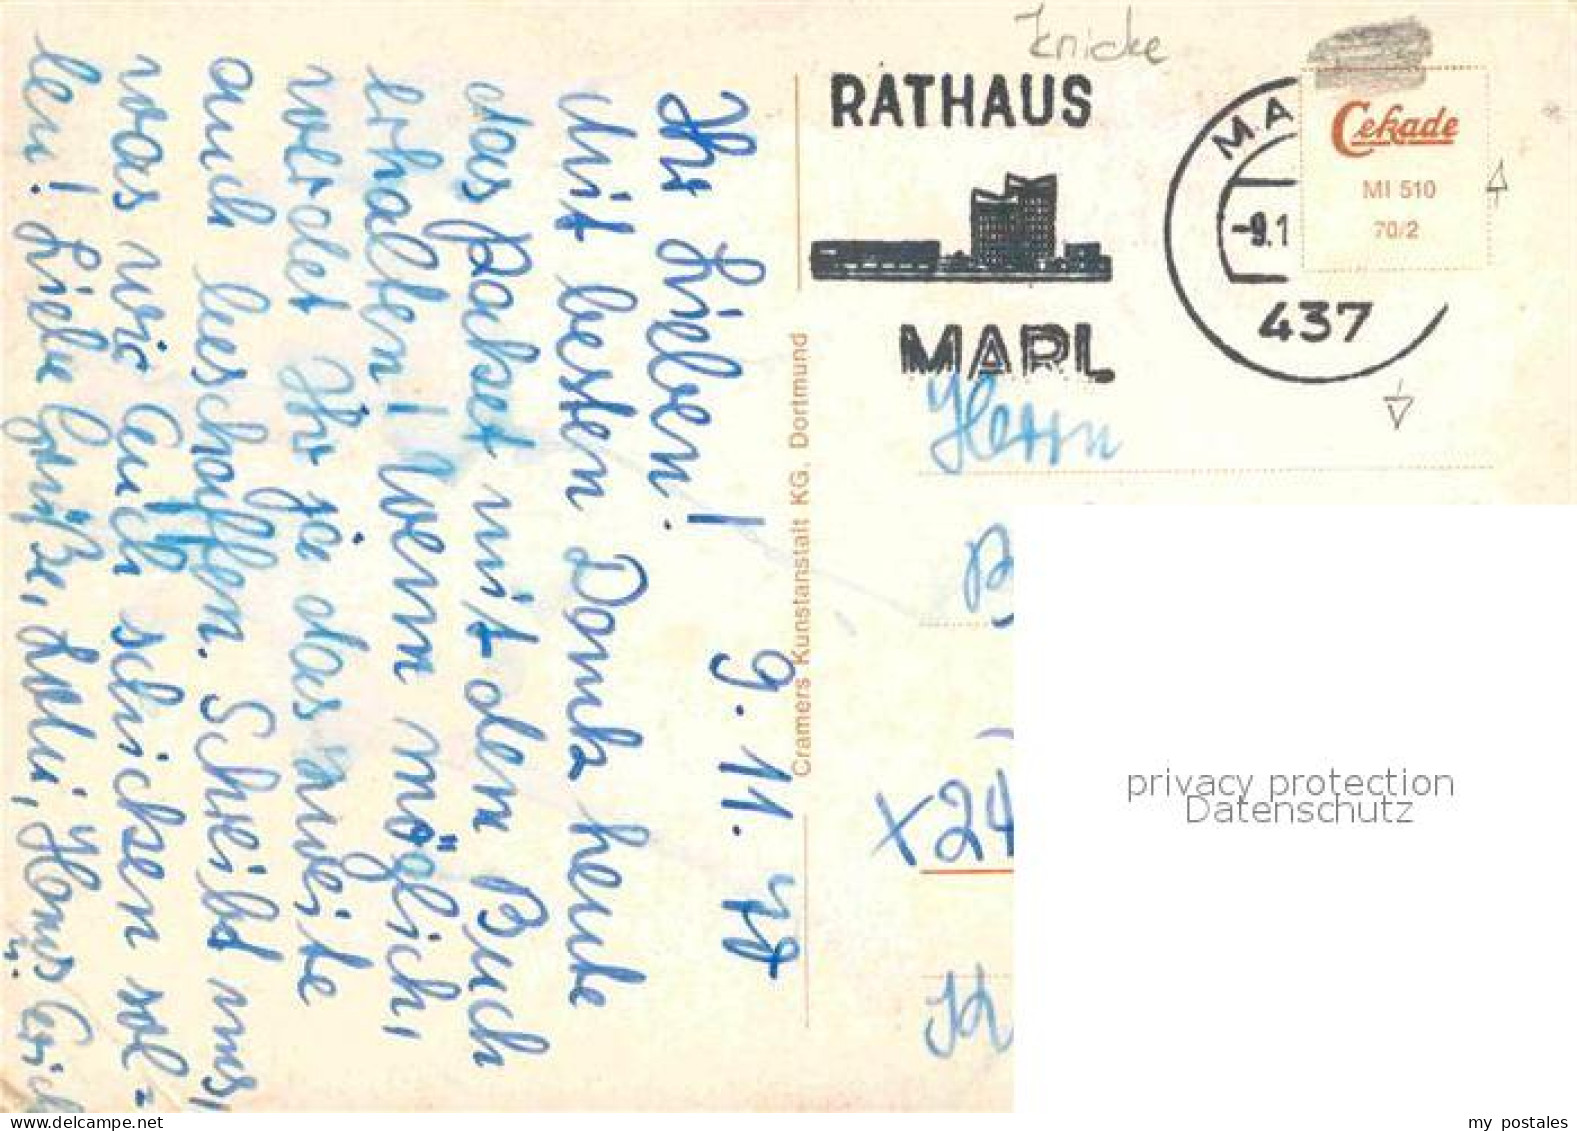 Knicke
RATHAUS
MARL
MA
-9.1
437
Cekade
MI 510
70/2
9. 11. 77
Ihr Lieben!
Mit besten Dank heute
das Packet mit dem Buch
erhalten! Wenn möglich,
werdet Ihr ja das zweite
auch beschaffen. Schreibt uns,
was wir Euch schicken sol-
len! Liebe Grüße, Lolli, Hans Erich
Cramers Kunstanstalt KG, Dortmund
Herrn
B
x24
privacy protection
Datenschutz
my postales